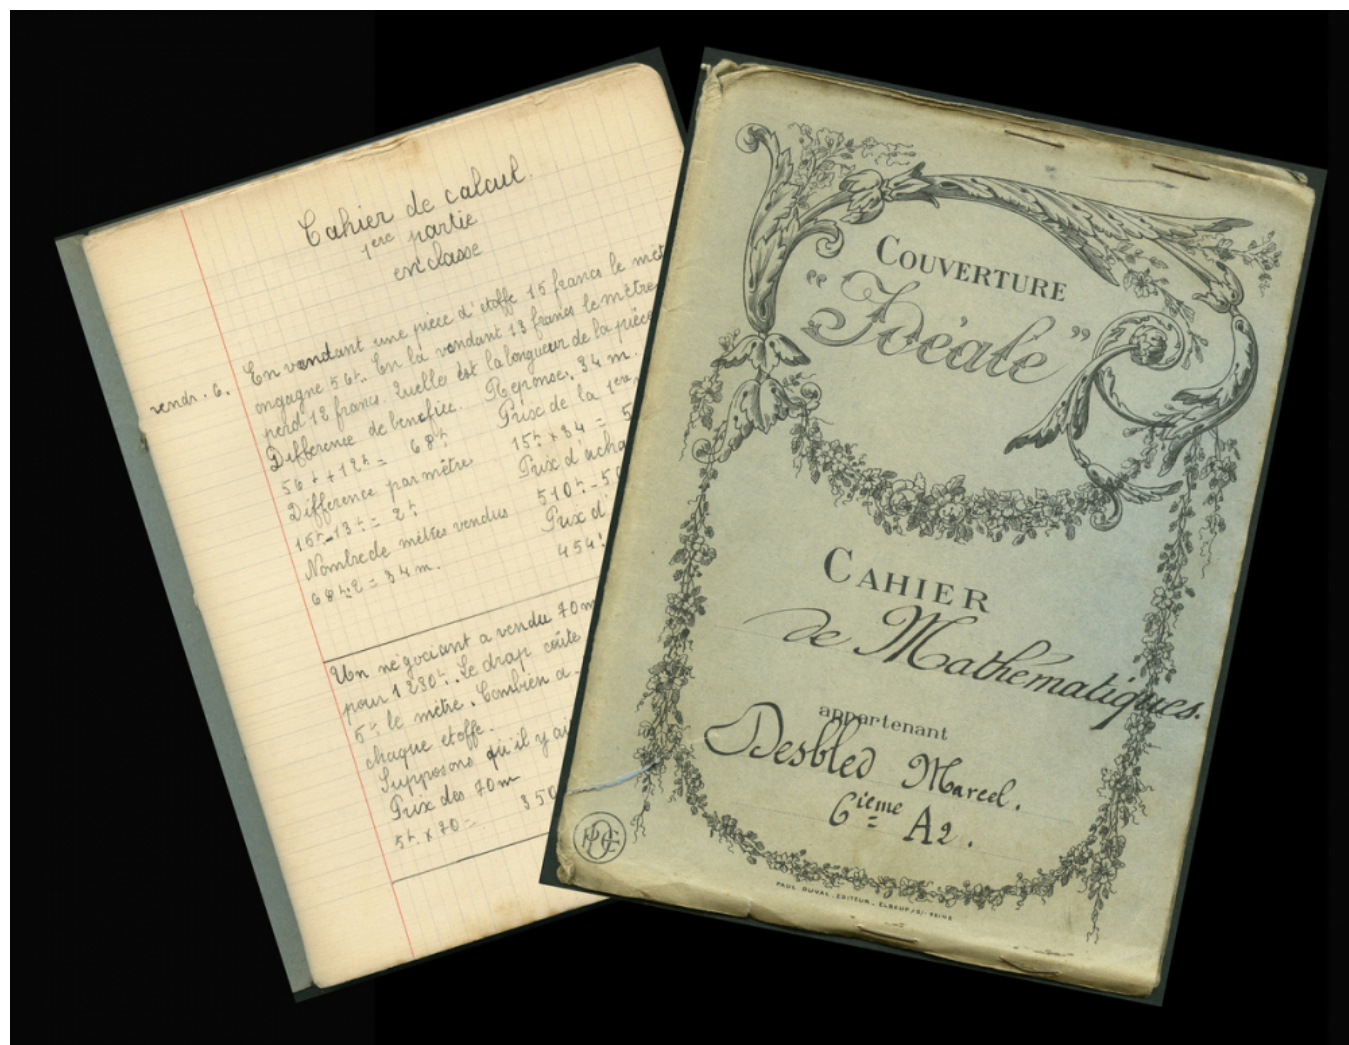 Cahier de calcul.
1ère partie
en classe
vendr. 6.
En vendant une pièce d'étoffe 15 francs le mèt
on gagne 56f. En la vendant 13 francs le mètre
perd 12 francs. Quelle est la longueur de la pièce
Différence de bénéfice. Réponse. 34 m.
56f + 12f = 68f Prix de la 1ère
Différence par mètre 15f × 34 = 5
15f - 13f = 2f Prix d'acha
Nombre de mètres vendus 510f - 5
68f : 2 = 34 m. Prix d'
454f
Un négociant a vendu 70m
pour 1280f. Le drap coûte
5f le mètre. Combien a-
chaque étoffe.
Supposons qu'il y ai
Prix des 70m
5f × 70 = 350
COUVERTURE
"Idéale"
CAHIER
de Mathématiques.
appartenant
Desbled Marcel.
6ième A2.
PAUL DUVAL, EDITEUR, ELBEUF S/ SEINE